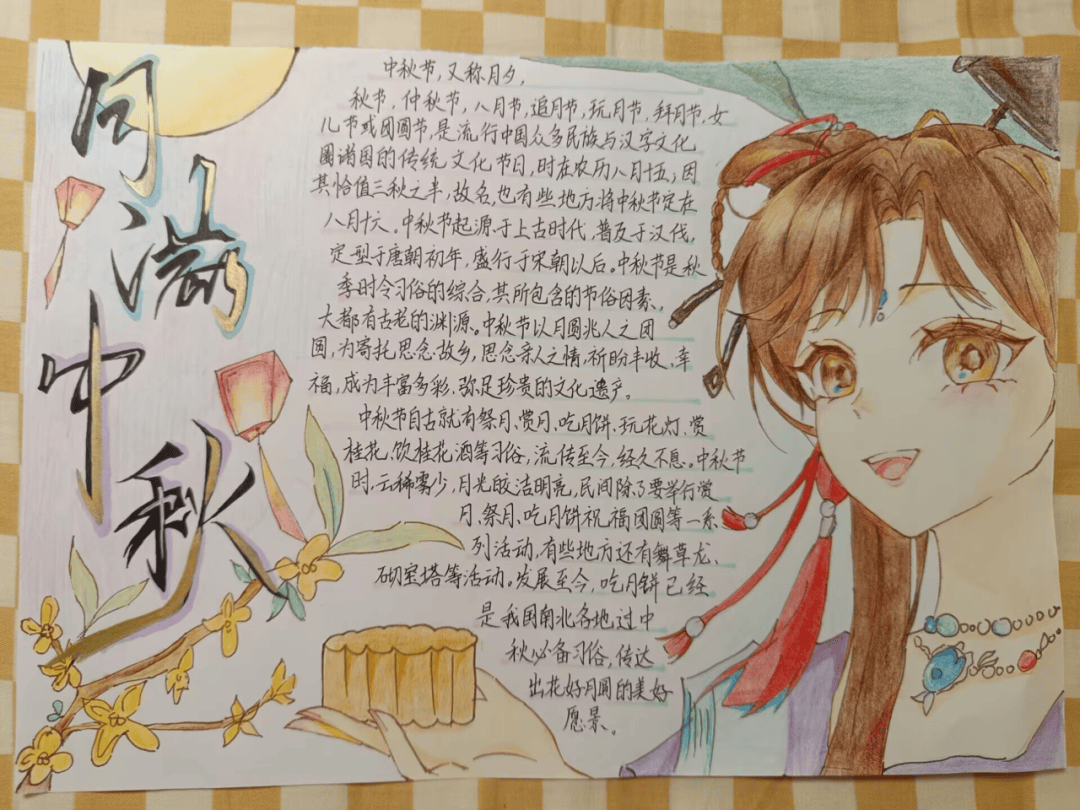 月满中秋
中秋节,又称月夕,
秋节,仲秋节,八月节,追月节,玩月节,拜月节,女
儿节或团圆节,是流行中国众多民族与汉字文化
圈诸国的传统文化节日,时在农历八月十五;因
其恰值三秋之半,故名,也有些地方将中秋节定在
八月十六。中秋节起源于上古时代,普及于汉代,
定型于唐朝初年,盛行于宋朝以后。中秋节是秋
季时令习俗的综合,其所包含的节俗因素,
大都有古老的渊源。中秋节以月圆兆人之团
圆,为寄托思念故乡,思念亲人之情,祈盼丰收、幸
福,成为丰富多彩、弥足珍贵的文化遗产。
中秋节自古就有祭月、赏月、吃月饼、玩花灯、赏
桂花、饮桂花酒等习俗,流传至今,经久不息。中秋节
时,云稀雾少,月光皎洁明亮,民间除了要举行赏
月、祭月、吃月饼祝福团圆等一系
列活动,有些地方还有舞草龙、
砌宝塔等活动。发展至今,吃月饼已经
是我国南北各地过中
秋必备习俗,传达
出花好月圆的美好
愿景、